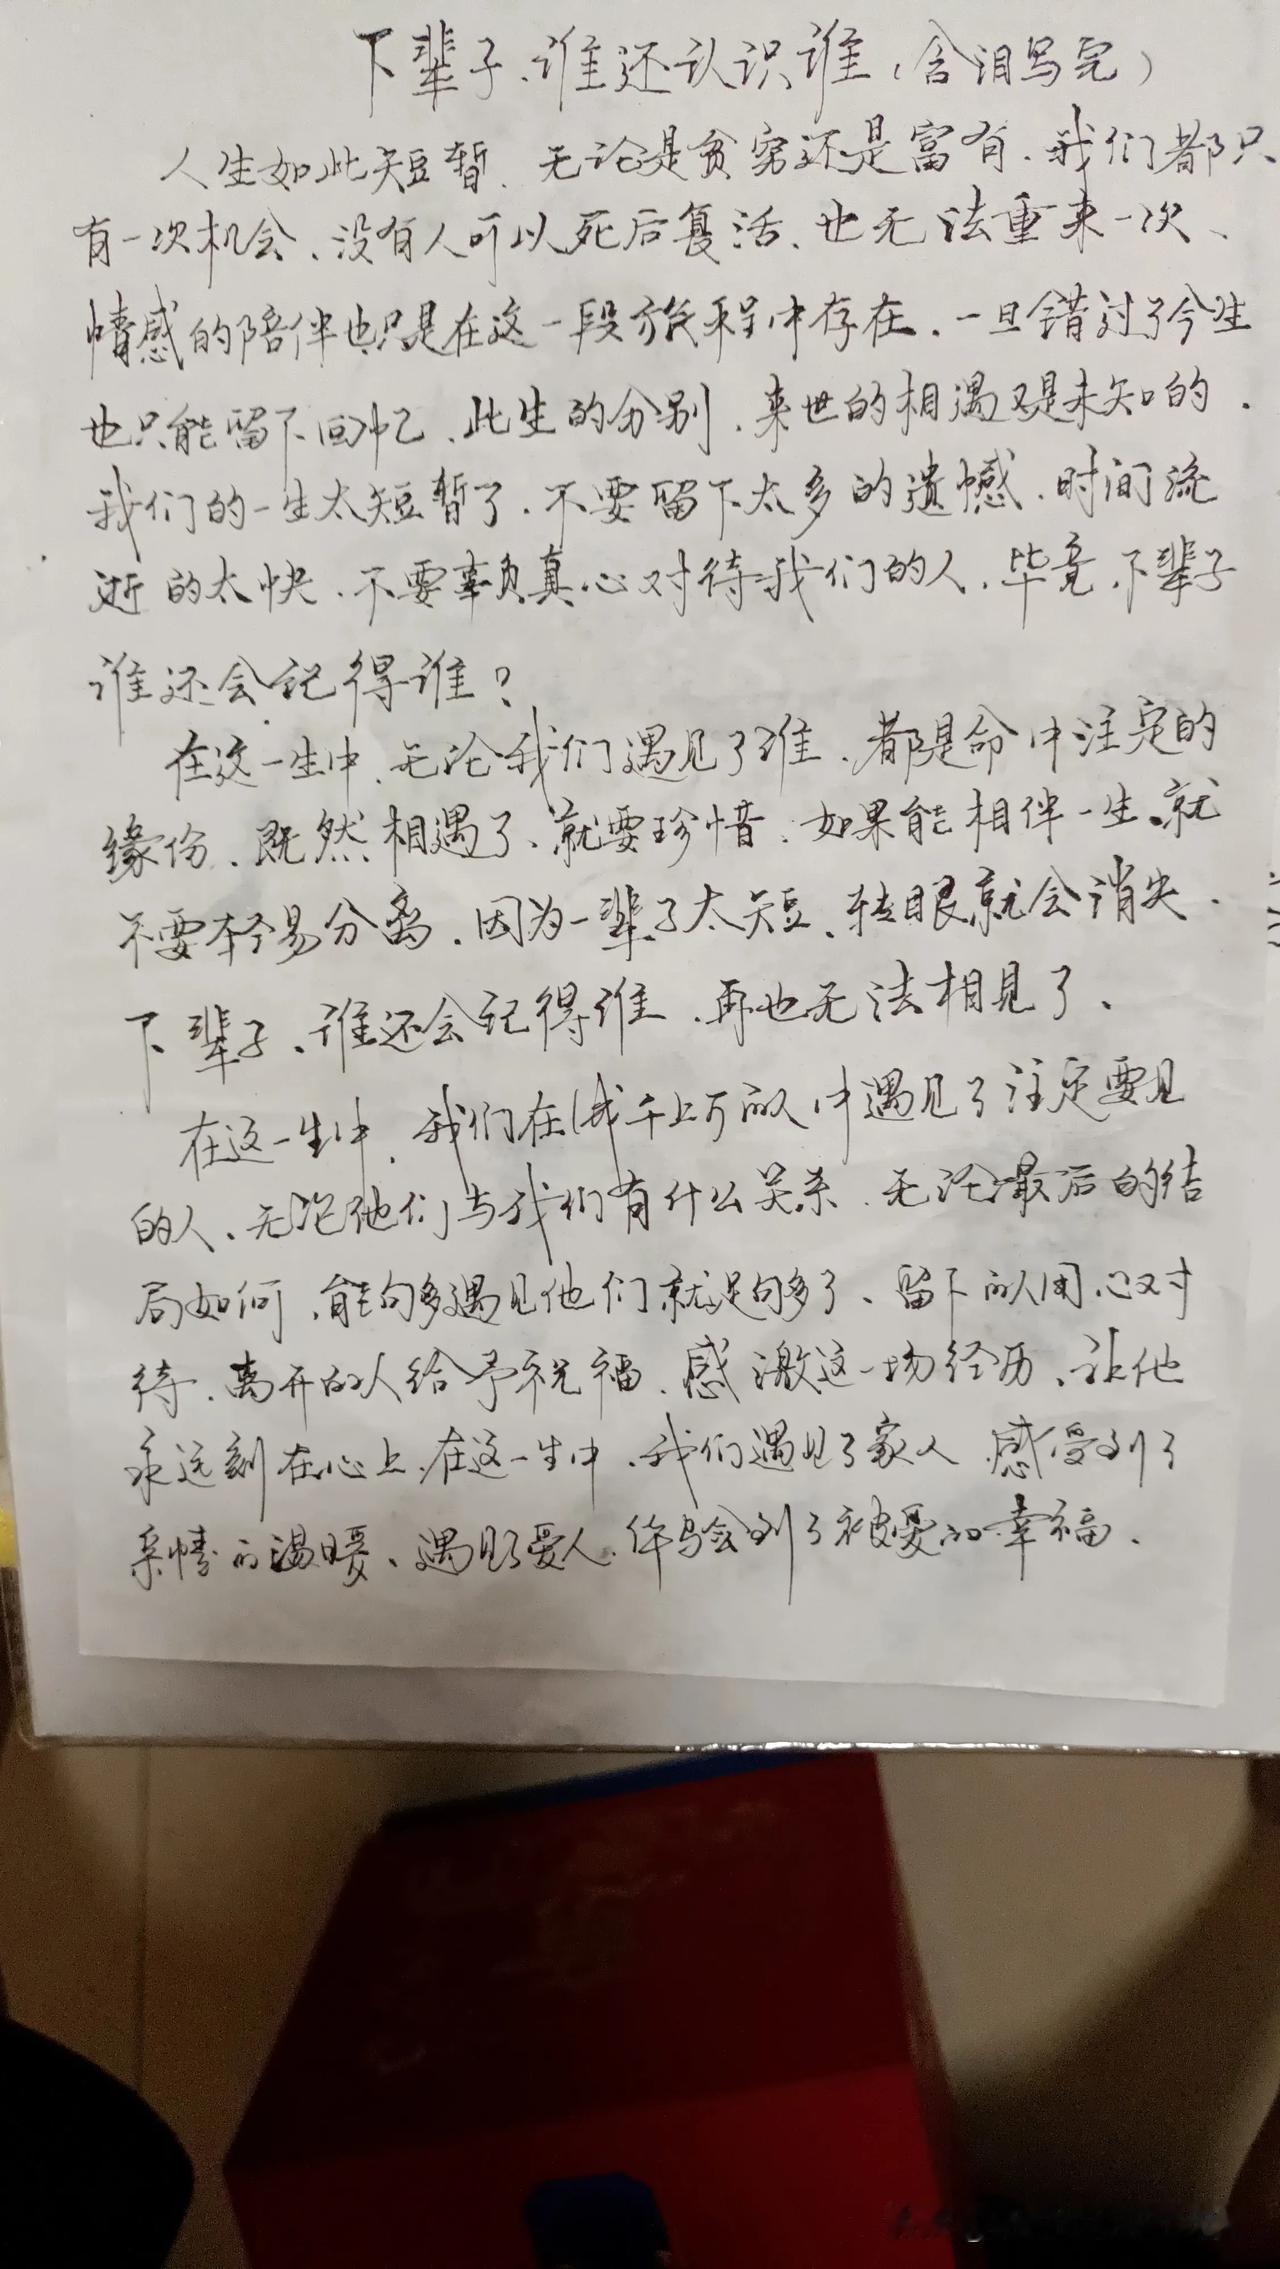 下辈子、谁还认识谁（含泪写完）
人生如此短暂、无论是贫穷还是富有.我们都只
有一次机会、没有人可以死后复活、也无法重来一次、
情感的陪伴也只是在这一段旅程中存在.一旦错过了今生
也只能留下回忆、此生的分别.来世的相遇又是未知的.
我们的一生太短暂了.不要留下太多的遗憾.时间流
逝的太快.不要辜负真心对待我们的人.毕竟下辈子
谁还会记得谁?
在这一生中、无论我们遇见了谁.都是命中注定的
缘份、既然相遇了、就要珍惜.如果能相伴一生、就
不要轻易分离.因为一辈子太短、转眼就会消失.
下辈子、谁还会记得谁.再也无法相见了、
在这一生中、我们在成千上万的人中遇见了注定要见
的人、无论他们与我们有什么关系.无论最后的结
局如何、能够遇见他们就足够了、留下的人用心对
待、离开的人给予祝福、感激这一场经历、让他
永远刻在心上.在这一生中、我们遇见了家人 感受到了
亲情的温暖、遇见了爱人.体会到了被爱的幸福.